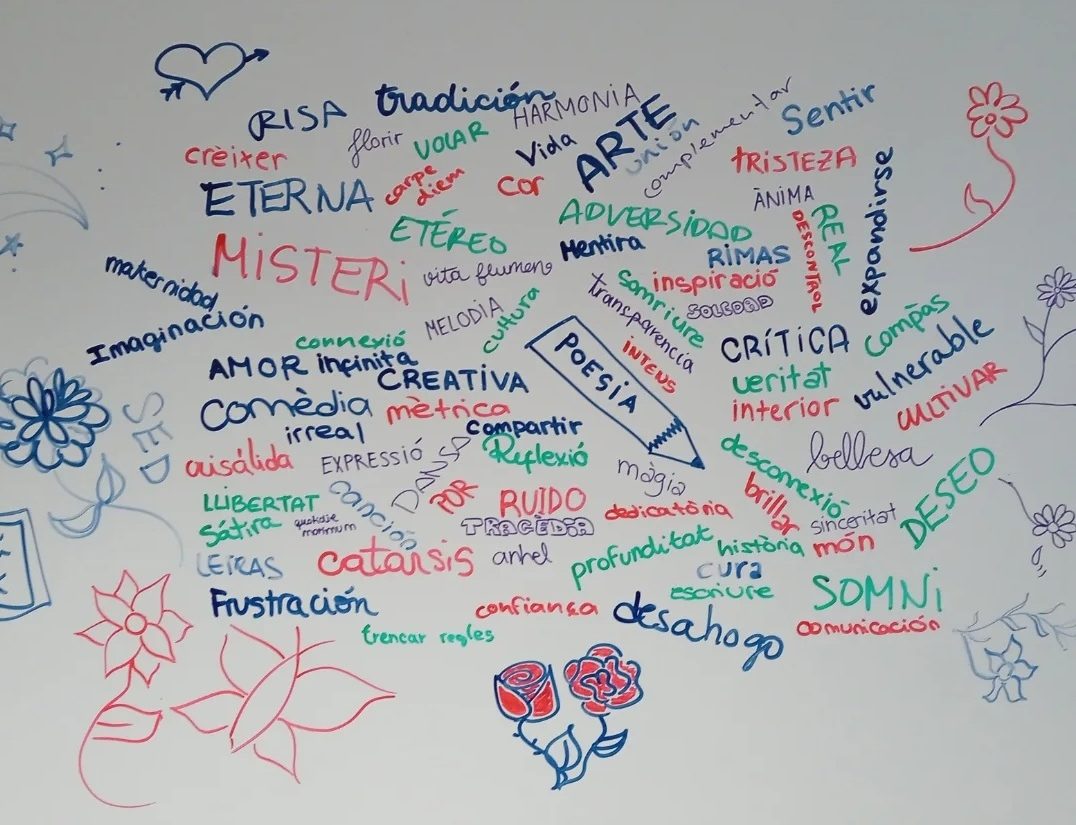 RISA
tradición
HARMONIA
florir
VOLAR
Vida
ARTE
unión
complementar
Sentir
crèixer
carpe
diem
cor
TRISTEZA
ETERNA
ÀNIMA
expandirse
ETÉREO
ADVERSIDAD
REAL
DESCONTROL
MISTERi
Mentira
RIMAS
maternidad
transparencia
somriure
inspiració
SOLEDAD
Imaginación
MELODIA
cultura
connexió
POESIA
INTENS
CRÍTICA
compàs
AMOR
infinita
CREATIVA
veritat
vulnerable
CULTIVAR
comèdia
mètrica
interior
SED
irreal
compartir
desconnexió
bellesa
EXPRESSIÓ
DANSA
Reflexió
màgia
brillar
DESEO
LLIBERTAT
canción
POR
RUIDO
dedicatòria
sinceritat
sátira
TRAGÈDIA
LEtRAS
catarsis
anhel
profunditat
història
món
cura
Frustración
confiança
desahogo
escriure
SOMNi
comunicación
trencar regles